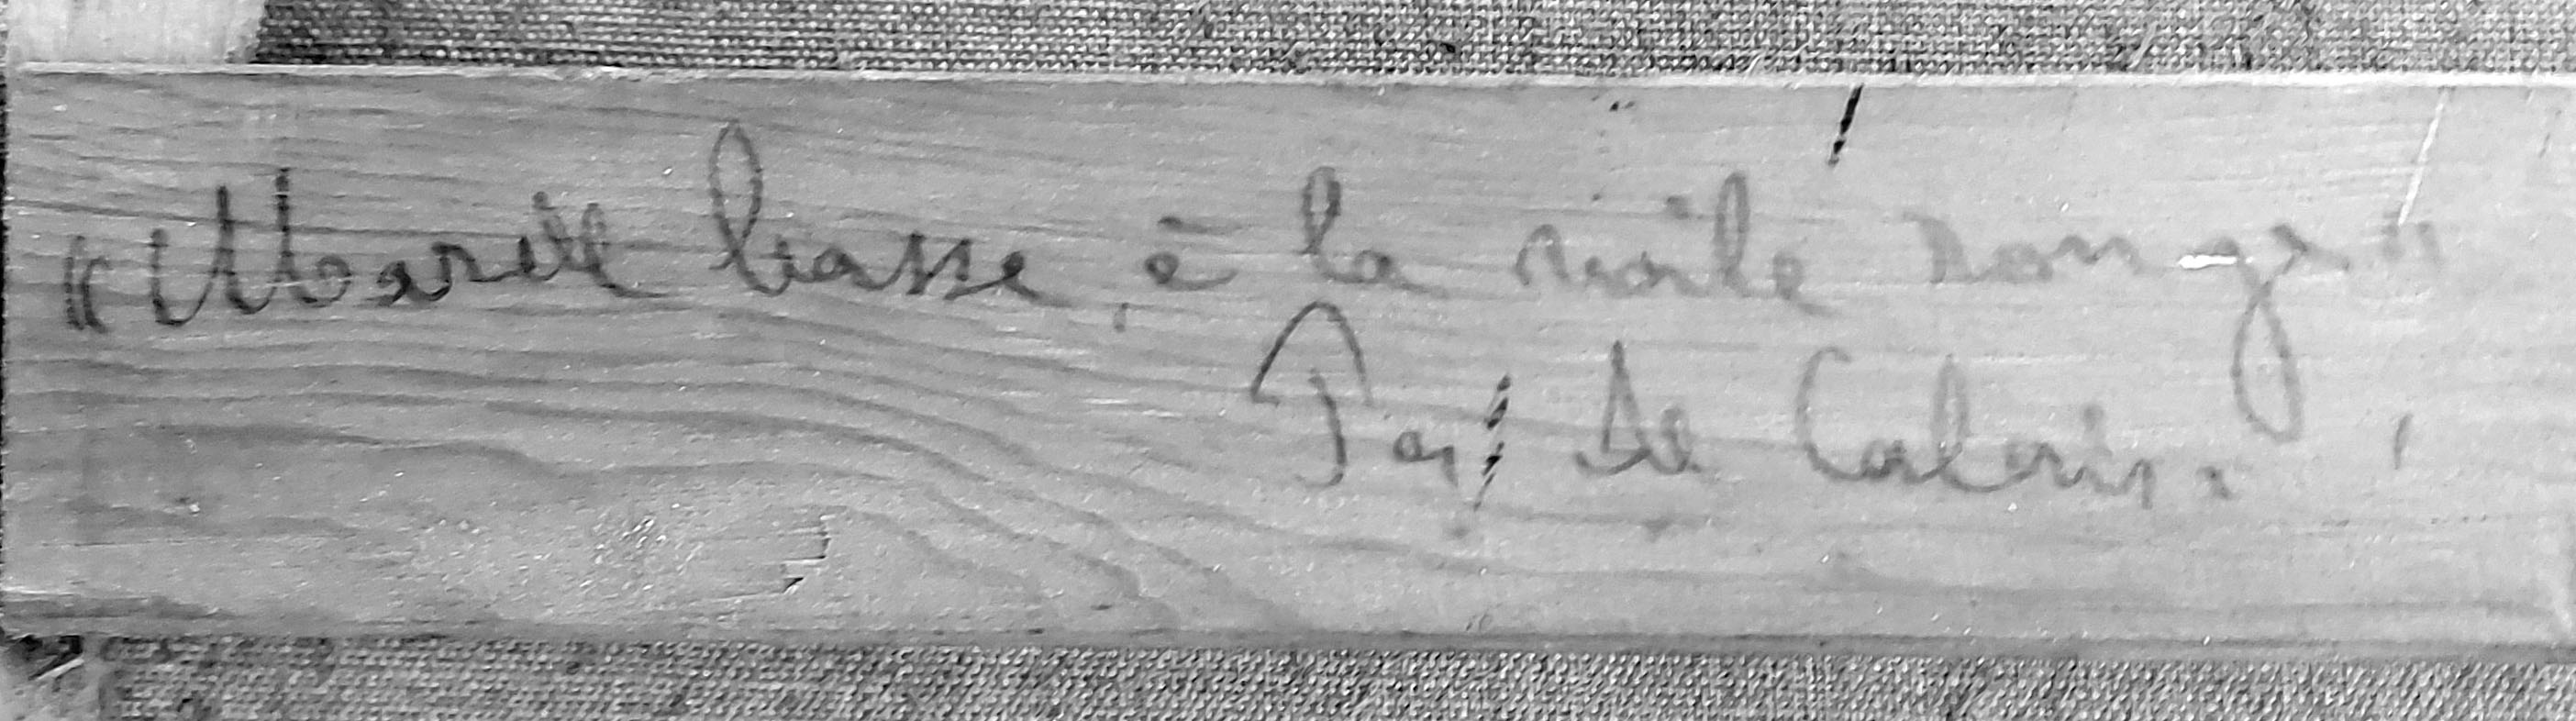 "Marée basse à la voile rouge"
Pas de Calais.